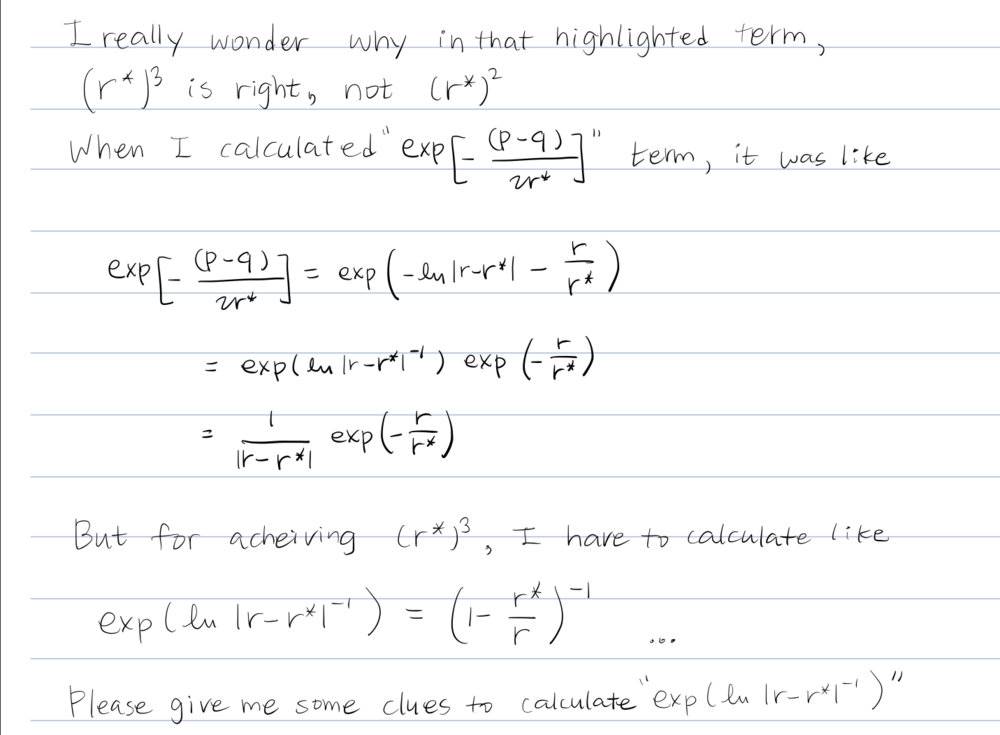 I really wonder why in that highlighted term,
(r*)³ is right, not (r*)²
When I calculated "exp[-(p-q)/2r*]" term, it was like
exp[-(p-q)/2r*] = exp(-ln|r-r*| - r/r*)
= exp(ln|r-r*|⁻¹) exp(-r/r*)
= 1/|r-r*| exp(-r/r*)
But for acheiving (r*)³, I have to calculate like
exp(ln|r-r*|⁻¹) = (1-r*/r)⁻¹ ...
Please give me some clues to calculate "exp(ln|r-r*|⁻¹)"